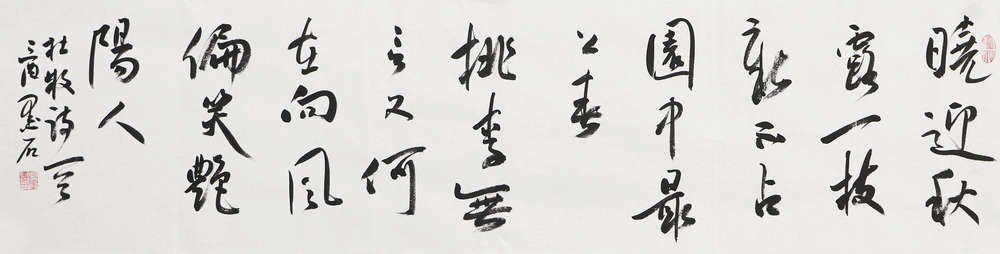 曉迎秋
露一枝
新不占
園中最
上春
桃李無
言又何
在向風
偏笑艷
陽人
杜牧诗一首
酉墨石